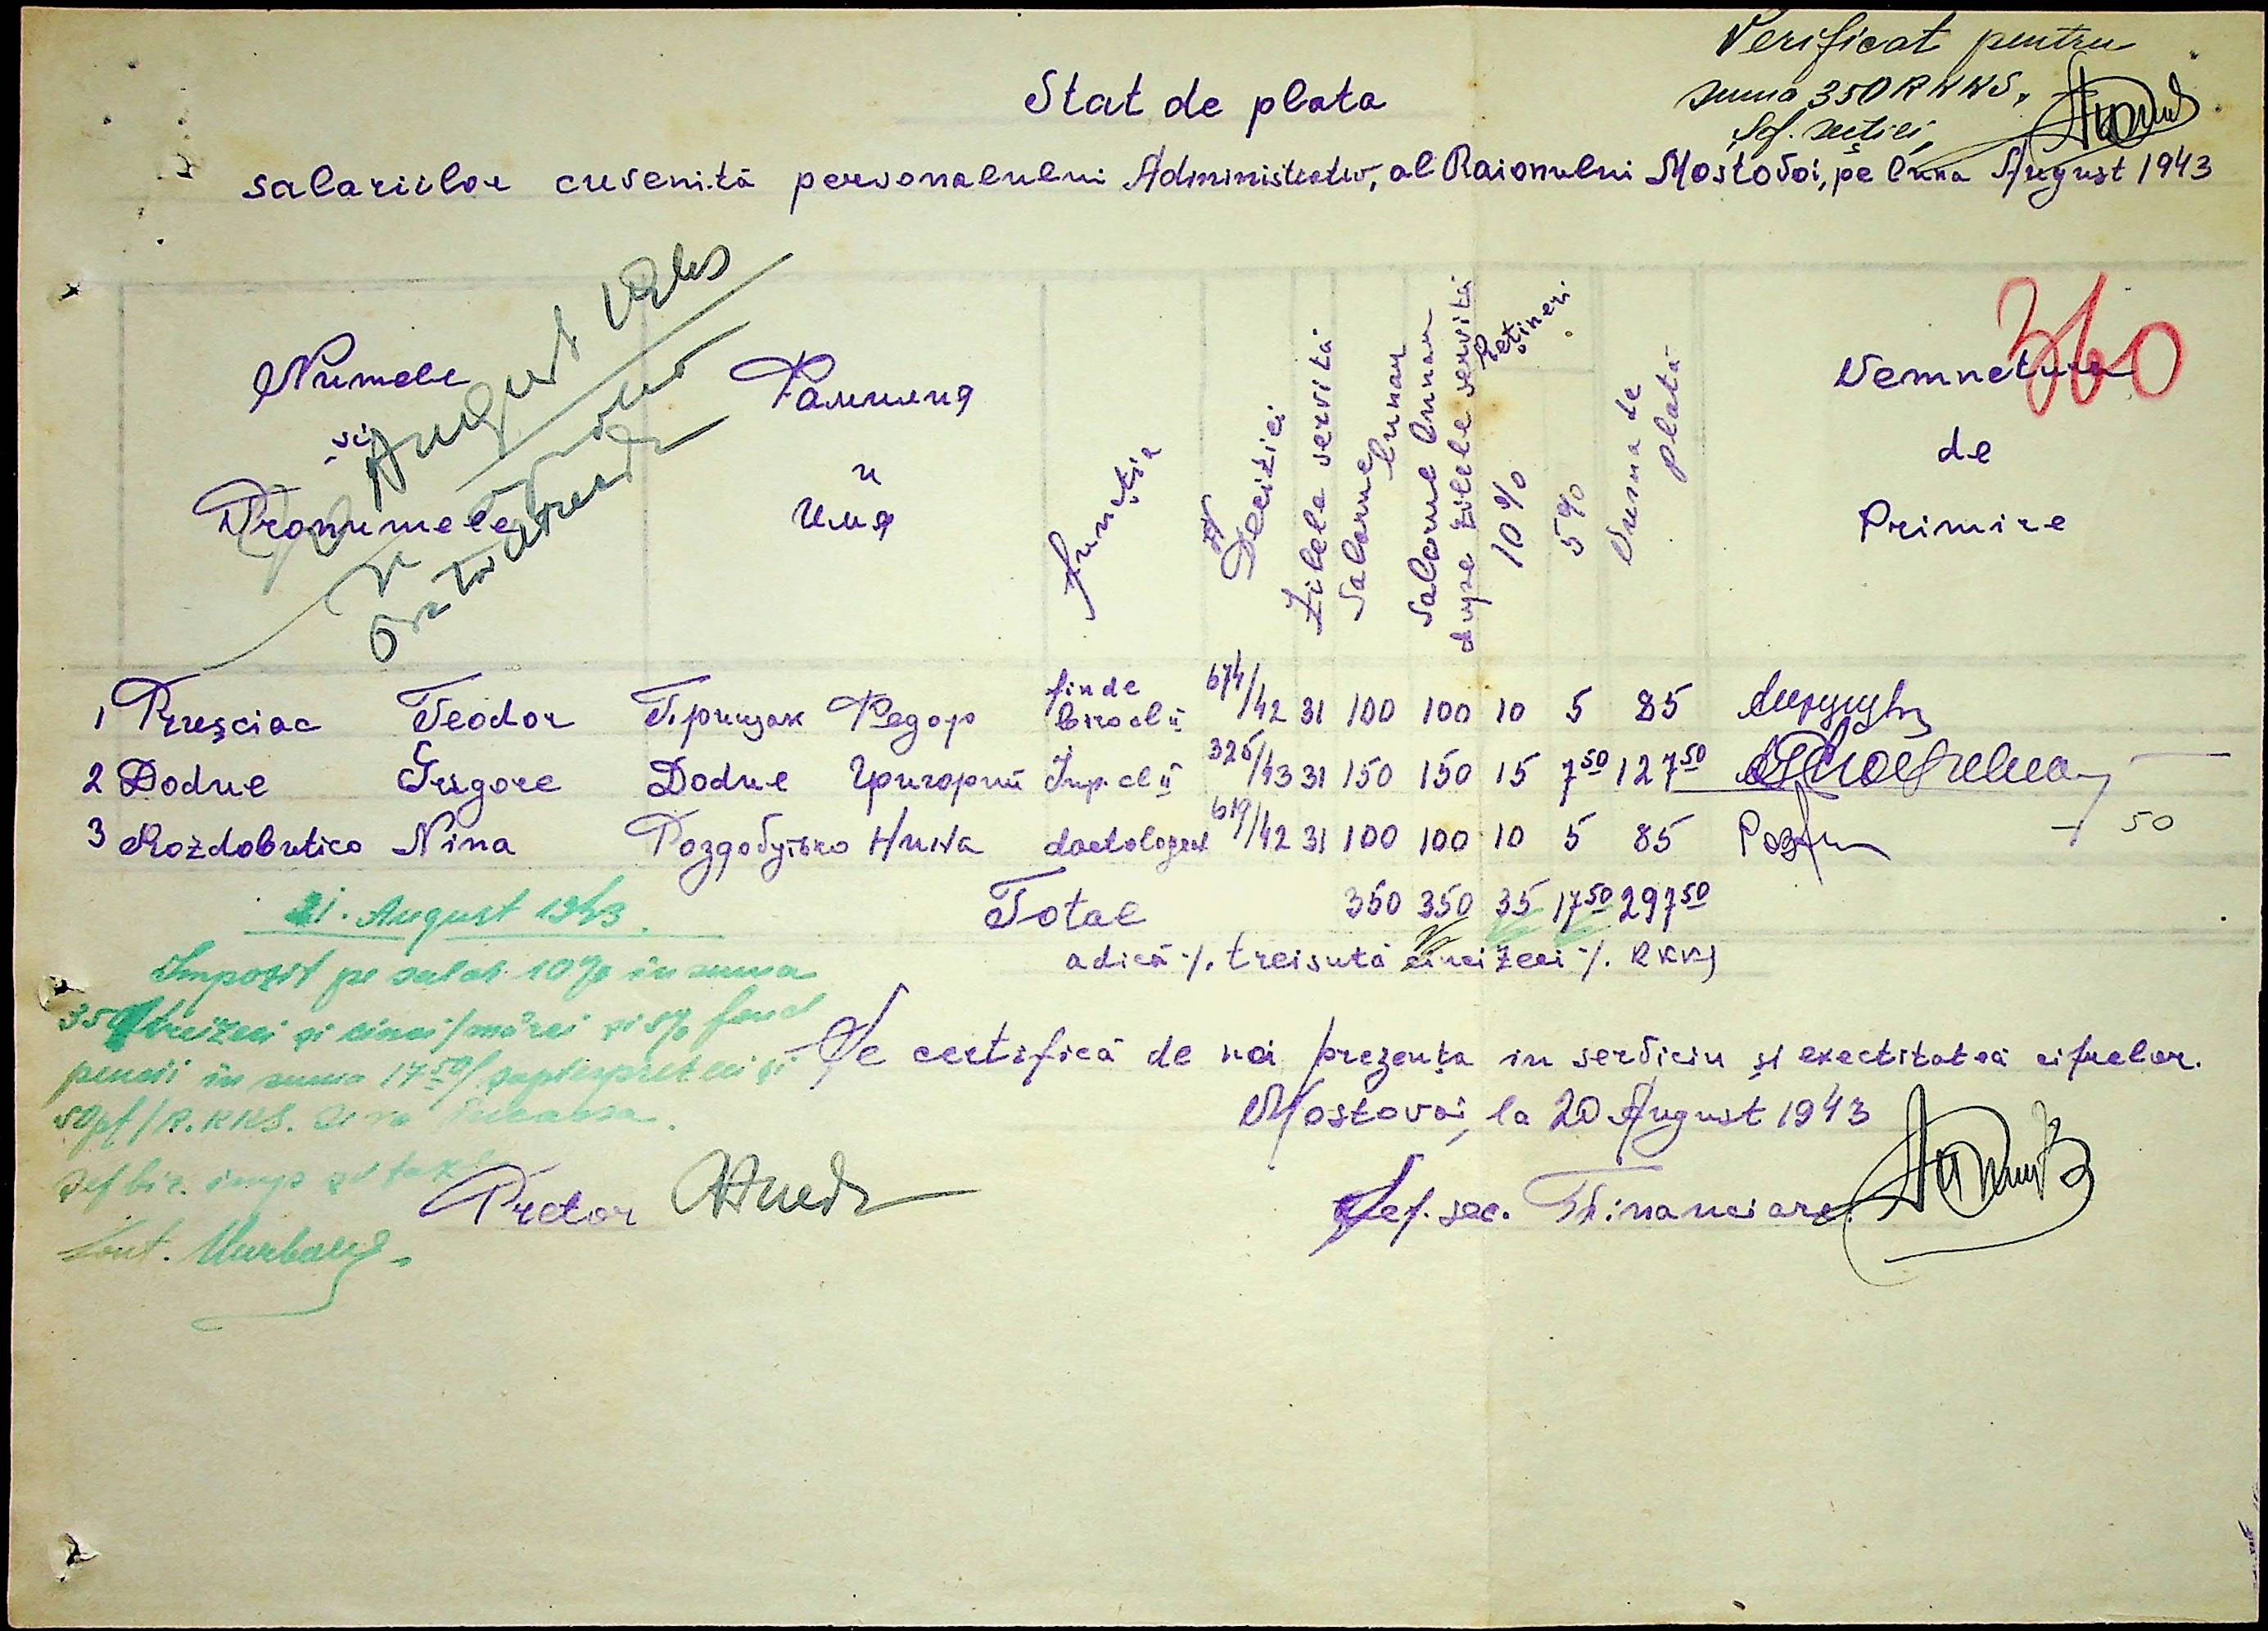 Verificat pentru
suma 350 RKKS,
Șef. secției,
Stat de plata
salariilor cuvenită personalului Administrativ, al Raionului Mostovoi, pe luna August 1943
360
Numele
și
Pronumele
Фамилия
и
Имя
funcția
№ Deciziei
Zilele servită
Salarul lunar
Salarul lunar
dupe zilele servită
Rețineri
10%
5%
Suma de
plată
Semnetura
de
Primire
1 Prușciac Teodor Прищак Федор fin de birocl ii 674/42 31 100 100 10 5 85
2 Dodul Grigore Dodul Григорий Imp. cl ii 326/43 31 150 150 15 7 50 127 50
3 Rozdobutico Nina Роздобутько Нина dactolograf 619/42 31 100 100 10 5 85
50
Total 350 350 35 17 50 297 50
adică ·/. treisută cincizeci ·/. RKKS
21. August 1943
Impozit pe salar 10% in suma
35 /treizeci și cinci/ mărci și 5% fond
pensii in suma 17 50/ șaptesprezeci și
50 pf/ R.KKS.
șef bir. imp și taxe
Se certifică de noi prezența in serviciu și exectitatea cifrelor.
Mostovoi, la 20 August 1943
Pretor
Șef. sec. Financiare.